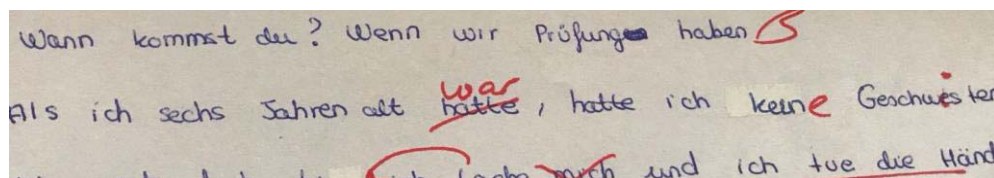 Wann kommst du? Wenn wir Prüfung haben
war
Als ich sechs Jahren alt hatte, hatte ich keine Geschwister
mich und ich tue die Händ